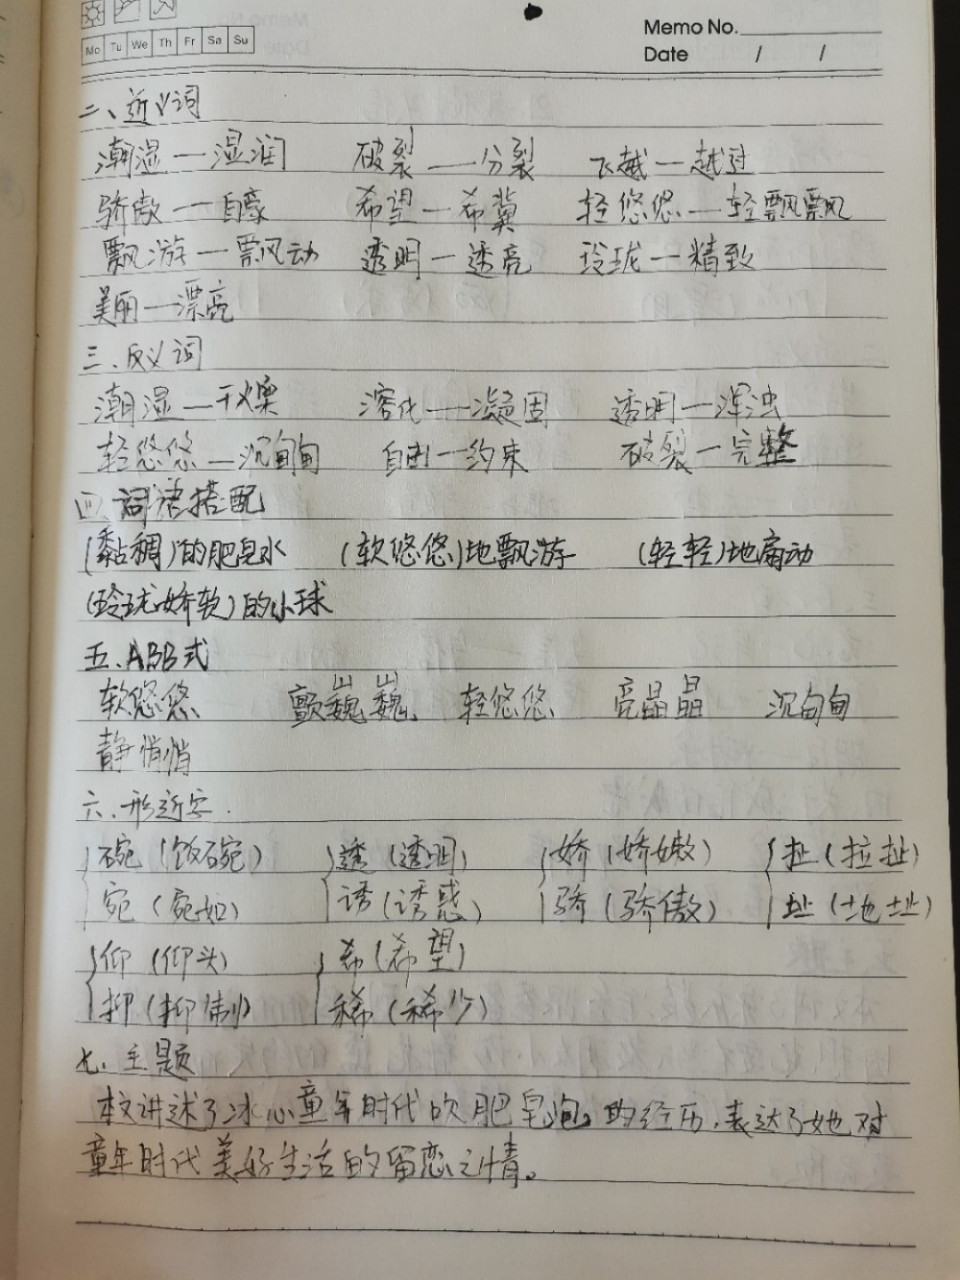 Memo No.
Mo Tu We Th Fr Sa Su
Date / /
二、近义词
潮湿—湿润 破裂—分裂 飞越—越过
骄傲—自豪 希望—希冀 轻悠悠—轻飘飘
飘游—飘动 透明—透亮 玲珑—精致
美丽—漂亮
三、反义词
潮湿—干燥 溶化—凝固 透明—浑浊
轻悠悠—沉甸甸 自由—约束 破裂—完整
四、词语搭配
(黏稠)的肥皂水 (软悠悠)地飘游 (轻轻)地扇动
(玲珑娇软)的小球
五、ABB式
软悠悠 颤巍巍 轻悠悠 亮晶晶 沉甸甸
静悄悄
六、形近字.
碗(饭碗) 透(透明) 娇(娇嫩) 扯(拉扯)
宛(宛如) 诱(诱惑) 骄(骄傲) 址(地址)
仰(仰头) 希(希望)
抑(抑制) 稀(稀少)
七、主题
本文讲述了冰心童年时代吹肥皂泡。的经历,表达了她对
童年时代美好生活的留恋之情。